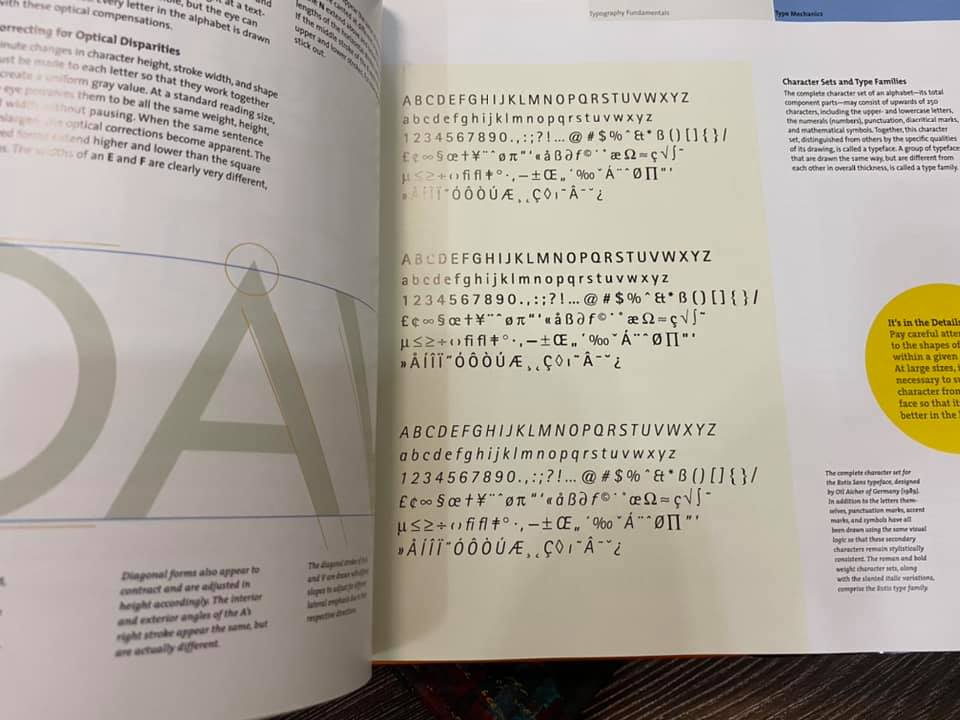 at a text-
, but the eye can
every letter in the alphabet is drawn
with these optical compensations.
orrecting for Optical Disparities
inute changes in character height, stroke width, and shape
ust be made to each letter so that they work together
create a uniform gray value. At a standard reading size,
eye perceives them to be all the same weight, height,
width without pausing. When the same sentence
optical corrections become apparent. The
extend higher and lower than the square
The widths of an E and F are clearly very different,
lengths of the
If the middle stroke of the
upper and lower strokes
stick out.
DAV
Diagonal forms also appear to
contract and are adjusted in
height accordingly. The interior
and exterior angles of the A's
right stroke appear the same, but
are actually different.
The diagonal
and V are drawn with
slopes to adjust for
lateral emphasis
respective directions.
Typography Fundamentals
Type Mechanics
ABCDEFGHIJKLMNOPQRSTUVWXYZ
abcdefghijklmnopqrstuvwxyz
1234567890.,:;?!…@#$%ˆ&*ß()[]{}/
£¢∞§œ†¥¨ˆøπ“‘«åß∂ƒ©˙˚æΩ≈ç√∫˜
µ≤≥÷‹›fifl‡°·‚—±Œ„´‰ˇÁ¨ˆØ∏”’
»ÅÍÎÏ˝ÓÔÒÚÆ¸˛Ç◊ı˜Â¯˘¿
ABCDEFGHIJKLMNOPQRSTUVWXYZ
abcdefghijklmnopqrstuvwxyz
1234567890.,:;?!…@#$%ˆ&*ß()[]{}/
£¢∞§œ†¥¨ˆøπ“‘«åß∂ƒ©˙˚æΩ≈ç√∫˜
µ≤≥÷‹›fifl‡°·‚—±Œ„´‰ˇÁ¨ˆØ∏”’
»ÅÍÎÏ˝ÓÔÒÚÆ¸˛Ç◊ı˜Â¯˘¿
ABCDEFGHIJKLMNOPQRSTUVWXYZ
abcdefghijklmnopqrstuvwxyz
1234567890.,:;?!…@#$%ˆ&*ß()[]{}/
£¢∞§œ†¥¨ˆøπ“‘«åß∂ƒ©˙˚æΩ≈ç√∫˜
µ≤≥÷‹›fifl‡°·‚—±Œ„´‰ˇÁ¨ˆØ∏”’
»ÅÍÎÏ˝ÓÔÒÚÆ¸˛Ç◊ı˜Â¯˘¿
Character Sets and Type Families
The complete character set of an alphabet—its total
component parts—may consist of upwards of 250
characters, including the upper- and lowercase letters,
the numerals (numbers), punctuation, diacritical marks,
and mathematical symbols. Together, this character
set, distinguished from others by the specific qualities
of its drawing, is called a typeface. A group of typeface
that are drawn the same way, but are different from
each other in overall thickness, is called a type family.
It's in the Details
Pay careful atte
to the shapes of
within a given
At large sizes, i
necessary to su
character from
face so that it
better in the
The complete character set for
the Rotis Sans typeface, designed
by Otl Aicher of Germany (1989).
In addition to the letters them-
selves, punctuation marks, accent
marks, and symbols have all
been drawn using the same visual
logic so that these secondary
characters remain stylistically
consistent. The roman and bold
weight character sets, along
with the slanted italic variations,
comprise the Rotis type family.